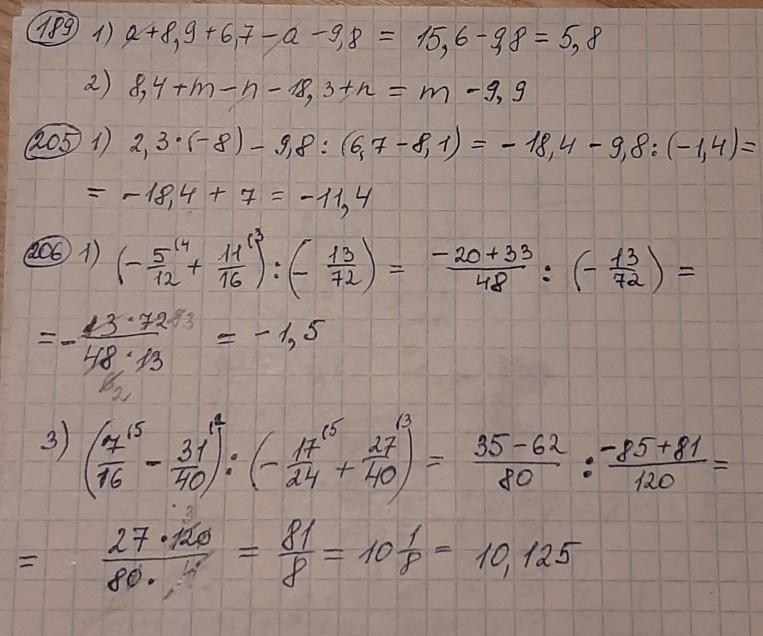 189 1) a+8,9+6,7-a-9,8 = 15,6-9,8 = 5,8
2) 8,4+m-n-18,3+n = m -9,9
205 1) 2,3·(-8) - 9,8 : (6,7-8,1) = -18,4 - 9,8 : (-1,4) =
= -18,4 + 7 = -11,4
206 1) (-5/12 (4 + 11/16 (3) : (-13/72) = (-20+33)/48 : (-13/72) =
= -(13·72)/(48·13) = -1,5
3) (7/16 (5 - 31/40 (2) : (-17/24 (5 + 27/40 (3) = (35-62)/80 : (-85+81)/120 =
= (27·120)/(80·4) = 81/8 = 10 1/8 = 10,125